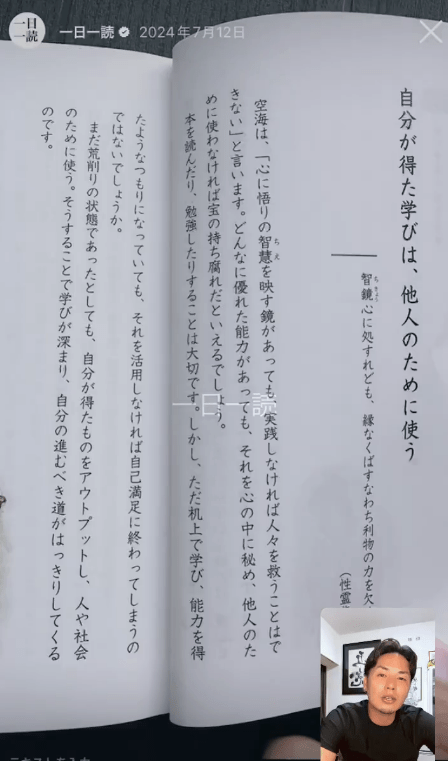 一日
一読
一日一読
2024年7月12日
自分が得た学びは、他人のために使う
智鏡心に処すれども、縁なくばすなわち利物の力を欠
ちきょう
（性霊
空海は、「心に悟りの智慧を映す鏡があっても、実践しなければ人々を救うことはで
ちえ
きない」と言います。どんなに優れた能力があっても、それを心の中に秘め、他人のた
めに使わなければ宝の持ち腐れだといえるでしょう。
本を読んだり、勉強したりすることは大切です。しかし、ただ机上で学び、能力を得
たようなつもりになっていても、それを活用しなければ自己満足に終わってしまうの
ではないでしょうか。
まだ荒削りの状態であったとしても、自分が得たものをアウトプットし、人や社会
のために使う。そうすることで学びが深まり、自分の進むべき道がはっきりしてくる
のです。
一日一読